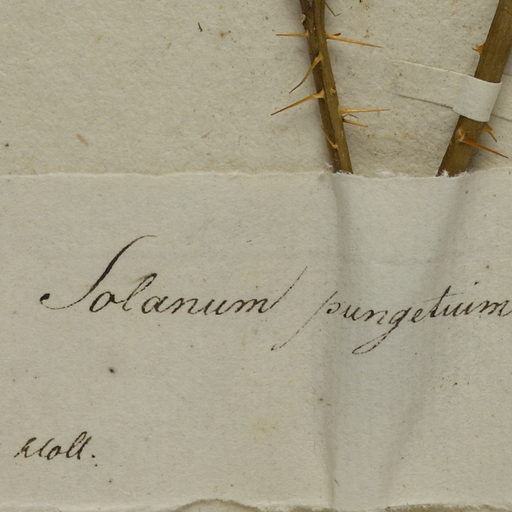 Solanum pungetium